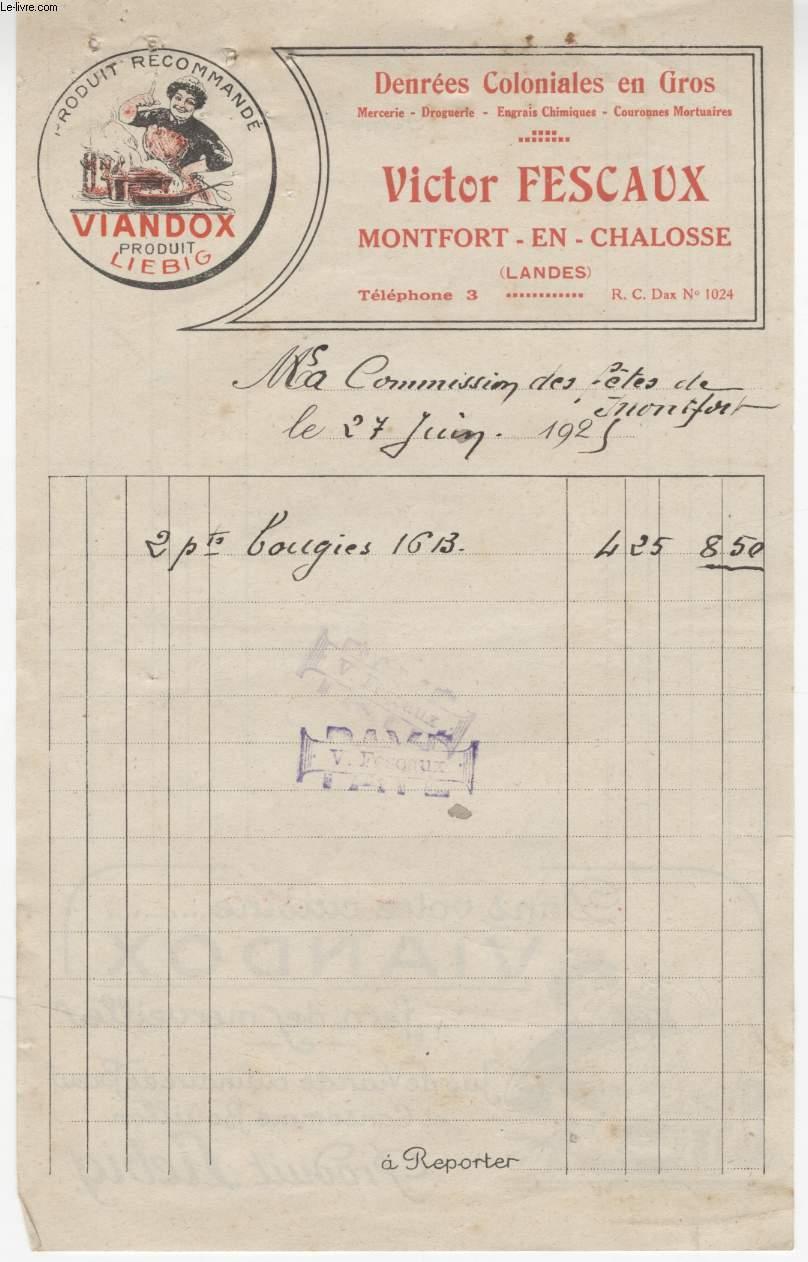 Le-livre.com
PRODUIT RECOMMANDÉ
VIANDOX
PRODUIT
LIEBIG
Denrées Coloniales en Gros
Mercerie - Droguerie - Engrais Chimiques - Couronnes Mortuaires
Victor FESCAUX
MONTFORT - EN - CHALOSSE
(LANDES)
Téléphone 3 R. C. Dax Nº 1024
Commission des fêtes de
Montfort
le 27 Juin. 1925
2 pts bougies 16 B. 4 25 8 50
V. Fescaux
V. Fescaux
VIANDOX
à Reporter